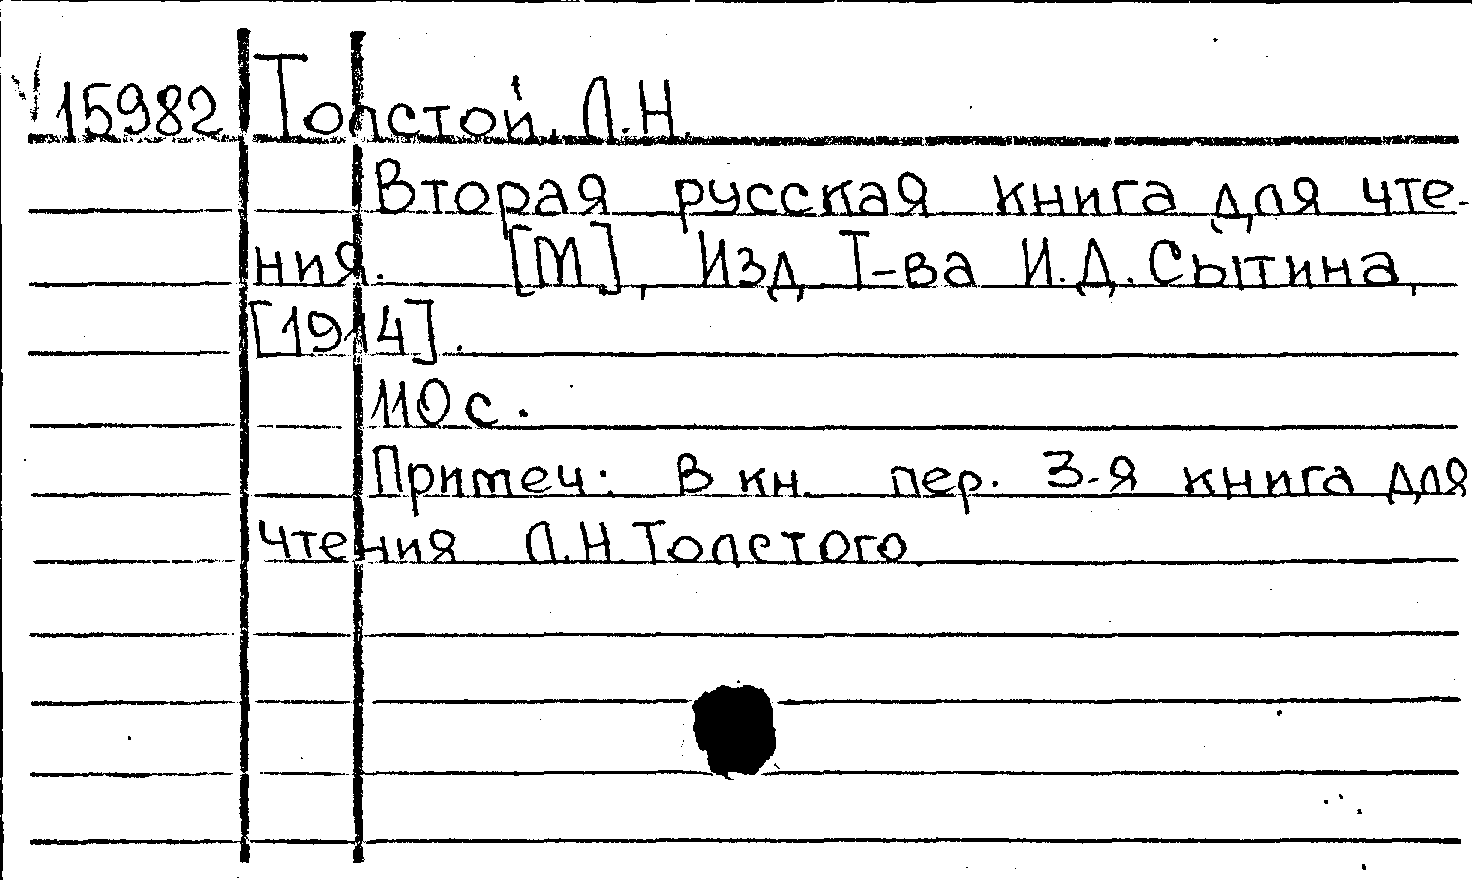 V 15982 Толстой, Л.Н.
Вторая русская книга для чте-
ния. [М.], Изд Т-ва И.Д.Сытина,
[1914].
110 с.
Примеч: В кн. пер. 3-я книга для
чтения Л.Н.Толстого